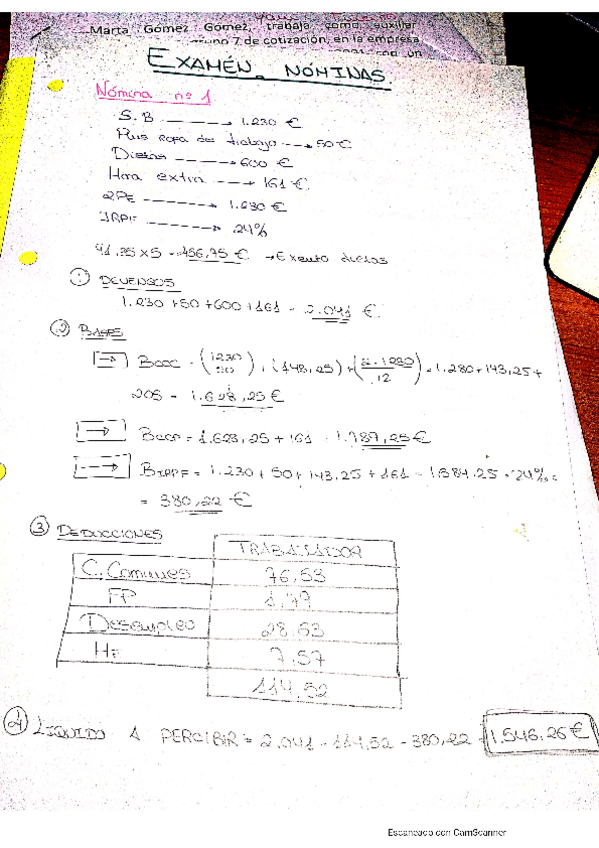 Marta Gómez Gómez, trabaja como auxiliar
7 de cotización, en la empresa
un
EXAMÉN NÓMINAS.
Nómina nº 1
S.B → 1.230 €
Plus ropa de trabajo → 50 €
Dietas → 600 €
Hora extra → 161 €
2PE → 1.230 €
IRPF → 24%
91.35 x 5 = 456,75 € → Exento dietas
① DEVENGOS
1.230 + 50 + 600 + 161 = 2.041 €
② BASES
→ BCCC = (1230 50) + (143,25) + (2·1230/12) = 1.280 + 143,25 +
205 = 1.628,25 €
→ BCCP = 1.628,25 + 161 = 1.789,25 €
→ BIRPF = 1.230 + 50 + 143.25 + 161 = 1.584.25 · 24% =
= 380,22 €
③ DEDUCCIONES
TRABAJADOR
C. Comunes 76,53
FP 1,79
Desempleo 28.63
HE 7.57
114,52
④ LÍQUIDO A PERCIBIR = 2.041 - 114,52 - 380,22 = 1.546,26 €
Escaneado con CamScanner